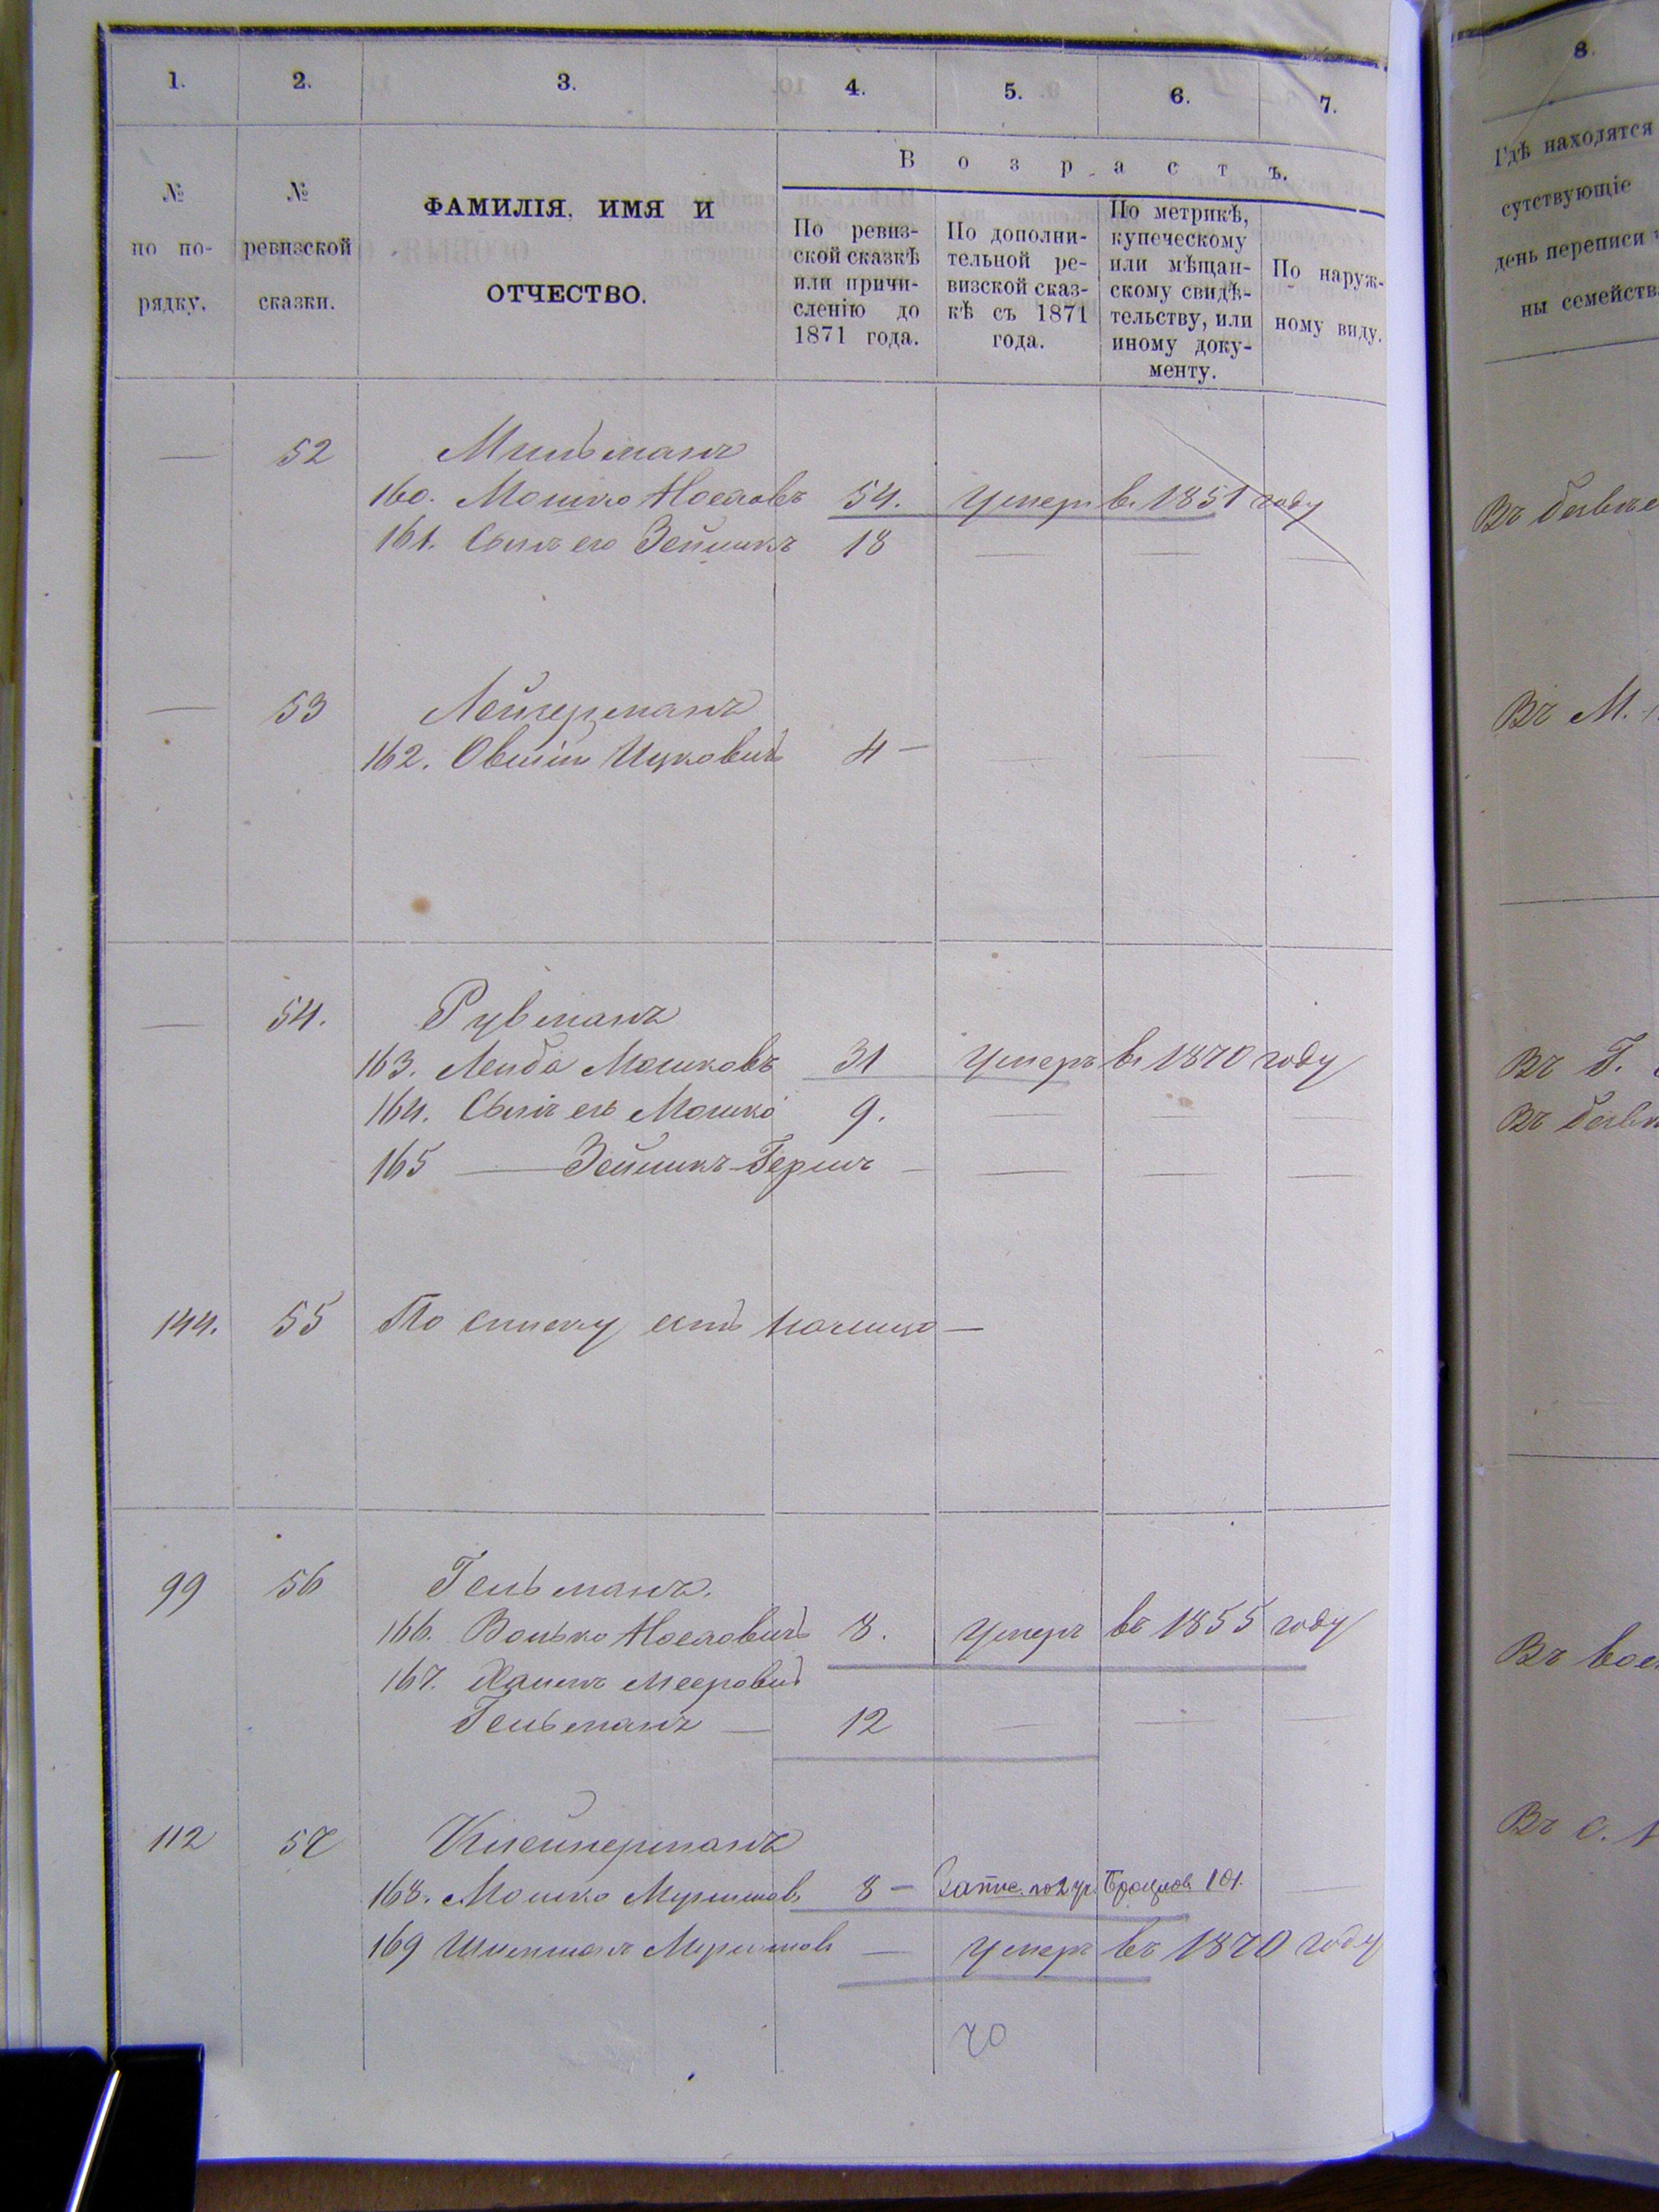 1. 2. 3. 4. 5. 6. 7.
№ по по-рядку.
№ ревизской сказки.
ФАМИЛІЯ, ИМЯ И
ОТЧЕСТВО.
Возрастъ.
По ревиз-
ской сказкѣ
или причи-
сленію до
1871 года.
По дополни-
тельной ре-
визской сказ-
кѣ съ 1871
года.
По метрикѣ,
купеческому
или мѣщан-
скому свидѣ-
тельству, или
иному доку-
менту.
По наруж-
ному виду.
— 52 Мильманъ
160. Мошко Носковъ 54. Умеръ в. 1851 году
161. Сынъ его Зейликъ 18 — — —
— 53 Лейзерманъ
162. Овшія Ицковичъ 4 — — — —
— 54. Рувманъ
163. Лейба Мошковъ 31 Умеръ въ 1870 году
164. Сынъ его Мошко 9. — — —
165 — Зейликъ-Гершъ — — — —
144. 55 По списку есть —
99 56 Гельманъ.
166. Волько Носковичъ 8. Умеръ въ 1855 году
167. Хаимъ Мееровичъ
Гельманъ — 12 — — —
112 57 Клейнерманъ
168. Мошко 8 — Запис. по 2 уч. 101. —
169 — Умеръ въ 1870 году
70
8.
Гдѣ находятся
сутствующіе
день переписи
ны семейств
Въ
Въ М.
Въ Г.
Въ
Въ
Въ с.